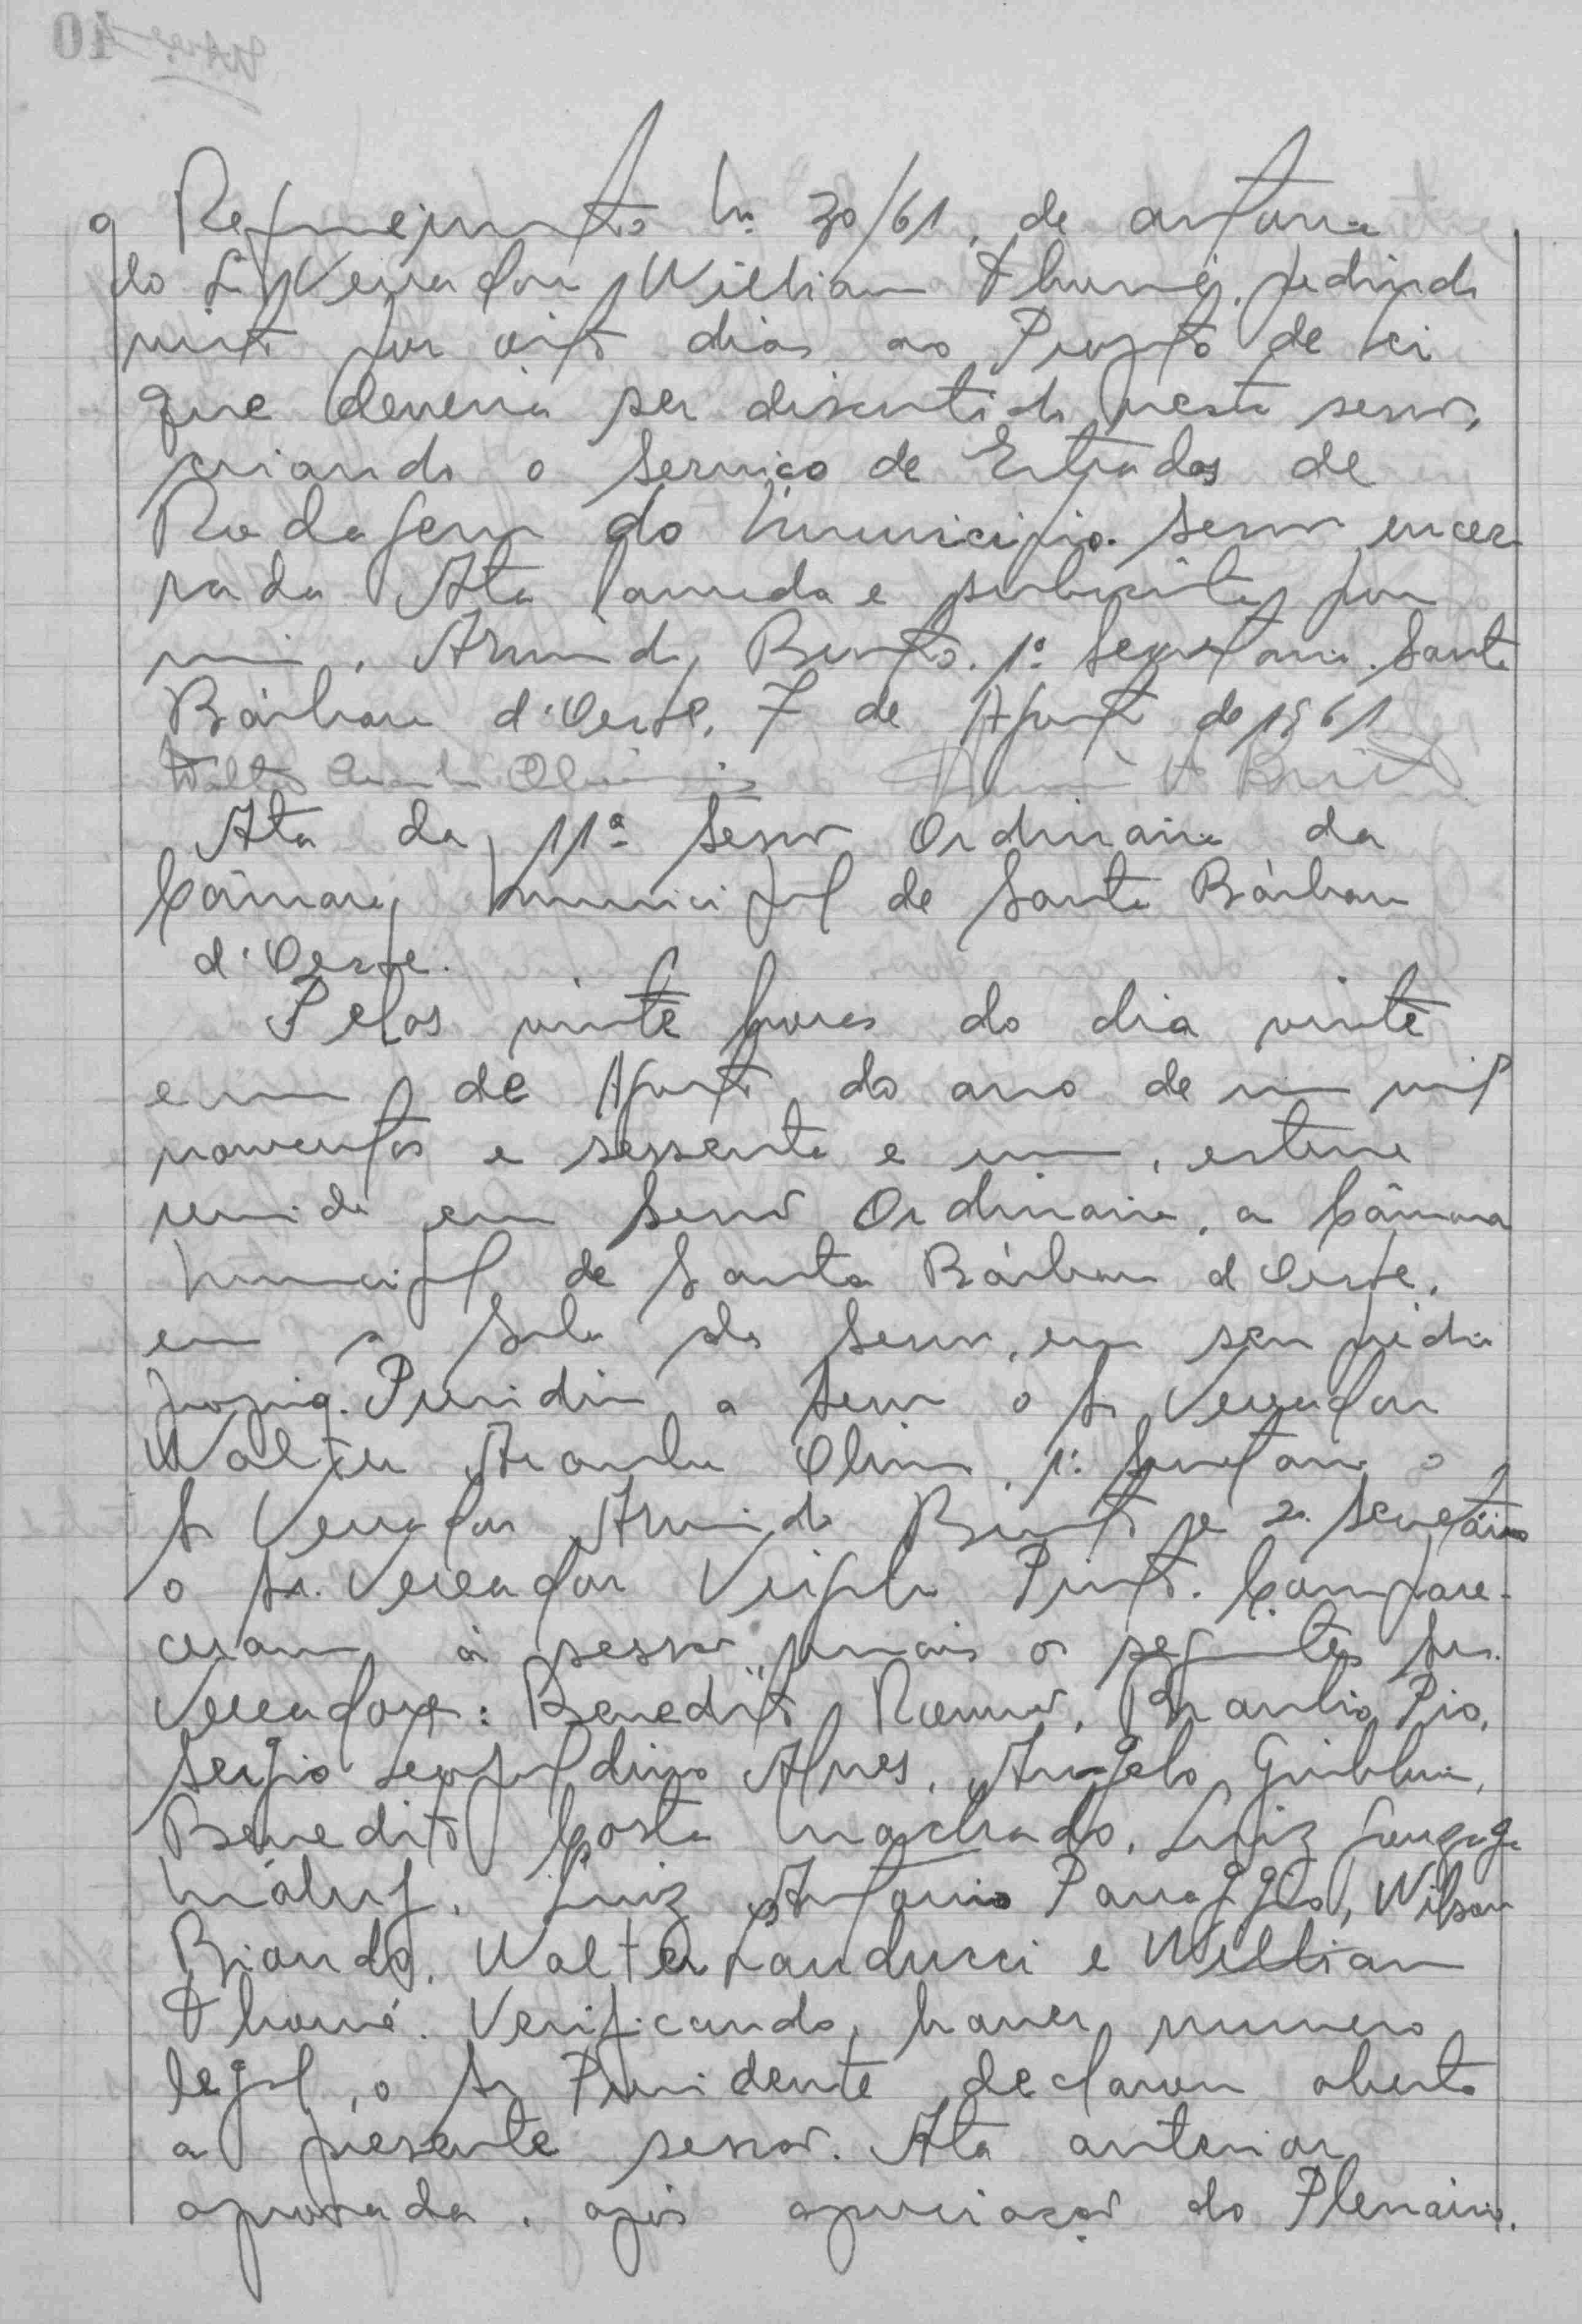 o Requerimento n. 30/61, de autoria
do Sr Vereador William Thomé, pedindo
vista por oito dias ao Projeto de lei
que deveria ser discutido nesta sessão,
criando o Serviço de Estradas de
Rodagem do Município. Sessão encer
rada Ata lavrada e subscrita por
mim, Armindo Bento. 1º Secretario. Santa
Bárbara d'Oeste, 7 de Agosto de 1961
Walter
Ata da 11ª Sessão Ordinaria da
Câmara Municipal de Santa Bárbara
d'Oeste.
Pelas vinte horas do dia vinte
e um de Agosto do ano de um mil
novecentos e sessenta e um, esteve
reunida em Sessão Ordinaria, a Câmara
Municipal de Santa Bárbara d'Oeste,
em a Sala da Sessão, em seu prédio
proprio. Presidiu a Sessão o Sr Vereador
Walter 1º Secretario o
Sr Vereador Armindo Bento e 2º Secretário
o Sr. Vereador Virgilio Pinto. Compare-
ceram à sessão mais os seguintes srs.
Vereadores: Benedito Braulio Pio,
Sergio Leopoldino Alves, Angelo
Benedito Costa Machado, Luiz Gonzaga
Maluf, Luiz Antonio Panaggio, Wilson
Biondo, Walter Landucci e William
Thomé. Verificando haver numero
legal, o Sr Presidente declarou aberta
a presente sessão. Ata anterior
aprovada, após apreciação do Plenário.